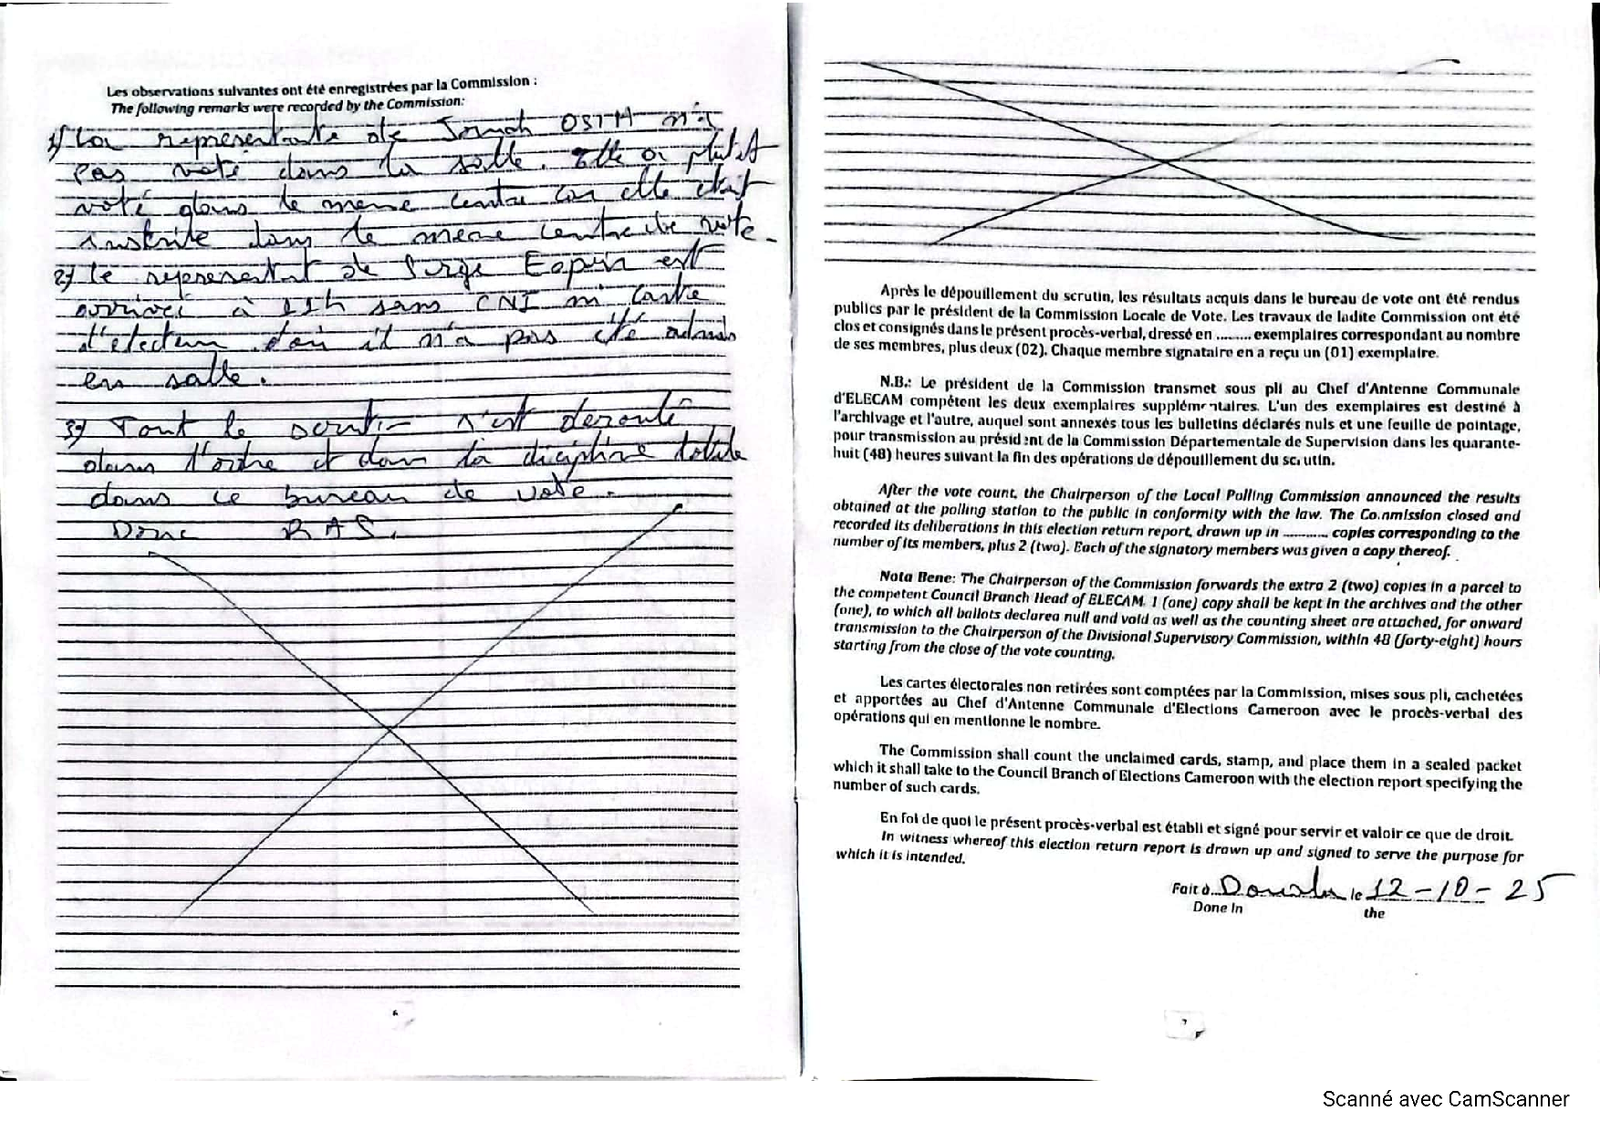 Les observations suivantes ont été enregistrées par la Commission :
The following remarks were recorded by the Commission:
1) La representante de Joseph OSIH n'a
pas voté dans la salle. Elle a plutot
voté dans le meme centre car elle etait
inscrite dans le meme centre de vote.
2) Le representant de Serge Espoir est
arrivé à 11h sans CNI ni carte
d'électeur d'où il n'a pas été admis
en salle.
3) Tout le scrutin s'est deroulé
dans l'ordre et dans la diciplive totale
dans ce bureau de vote.
Donc RAS.
6
Après le dépouillement du scrutin, les résultats acquis dans le bureau de vote ont été rendus
publics par le président de la Commission Locale de Vote. Les travaux de ladite Commission ont été
clos et consignés dans le présent procès-verbal, dressé en ......... exemplaires correspondant au nombre
de ses membres, plus deux (02). Chaque membre signataire en a reçu un (01) exemplaire.
N.B.: Le président de la Commission transmet sous pli au Chef d'Antenne Communale
d'ELECAM compétent les deux exemplaires supplémentaires. L'un des exemplaires est destiné à
l'archivage et l'autre, auquel sont annexés tous les bulletins déclarés nuls et une feuille de pointage,
pour transmission au président de la Commission Départementale de Supervision dans les quarante-
huit (48) heures suivant la fin des opérations de dépouillement du scrutin.
After the vote count, the Chairperson of the Local Polling Commission announced the results
obtained at the polling station to the public in conformity with the law. The Commission closed and
recorded its deliberations in this election return report, drawn up in ........... copies corresponding to the
number of its members, plus 2 (two). Each of the signatory members was given a copy thereof.
Nota Bene: The Chairperson of the Commission forwards the extra 2 (two) copies in a parcel to
the competent Council Branch Head of ELECAM. 1 (one) copy shall be kept in the archives and the other
(one), to which all ballots declared null and void as well as the counting sheet are attached, for onward
transmission to the Chairperson of the Divisional Supervisory Commission, within 48 (forty-eight) hours
starting from the close of the vote counting.
Les cartes électorales non retirées sont comptées par la Commission, mises sous pli, cachetées
et apportées au Chef d'Antenne Communale d'Elections Cameroon avec le procès-verbal des
opérations qui en mentionne le nombre.
The Commission shall count the unclaimed cards, stamp, and place them in a sealed packet
which it shall take to the Council Branch of Elections Cameroon with the election report specifying the
number of such cards.
En foi de quoi le présent procès-verbal est établi et signé pour servir et valoir ce que de droit.
In witness whereof this election return report is drawn up and signed to serve the purpose for
which it is intended.
Fait à Douala le 12-10-25
Done In the
7
Scanné avec CamScanner